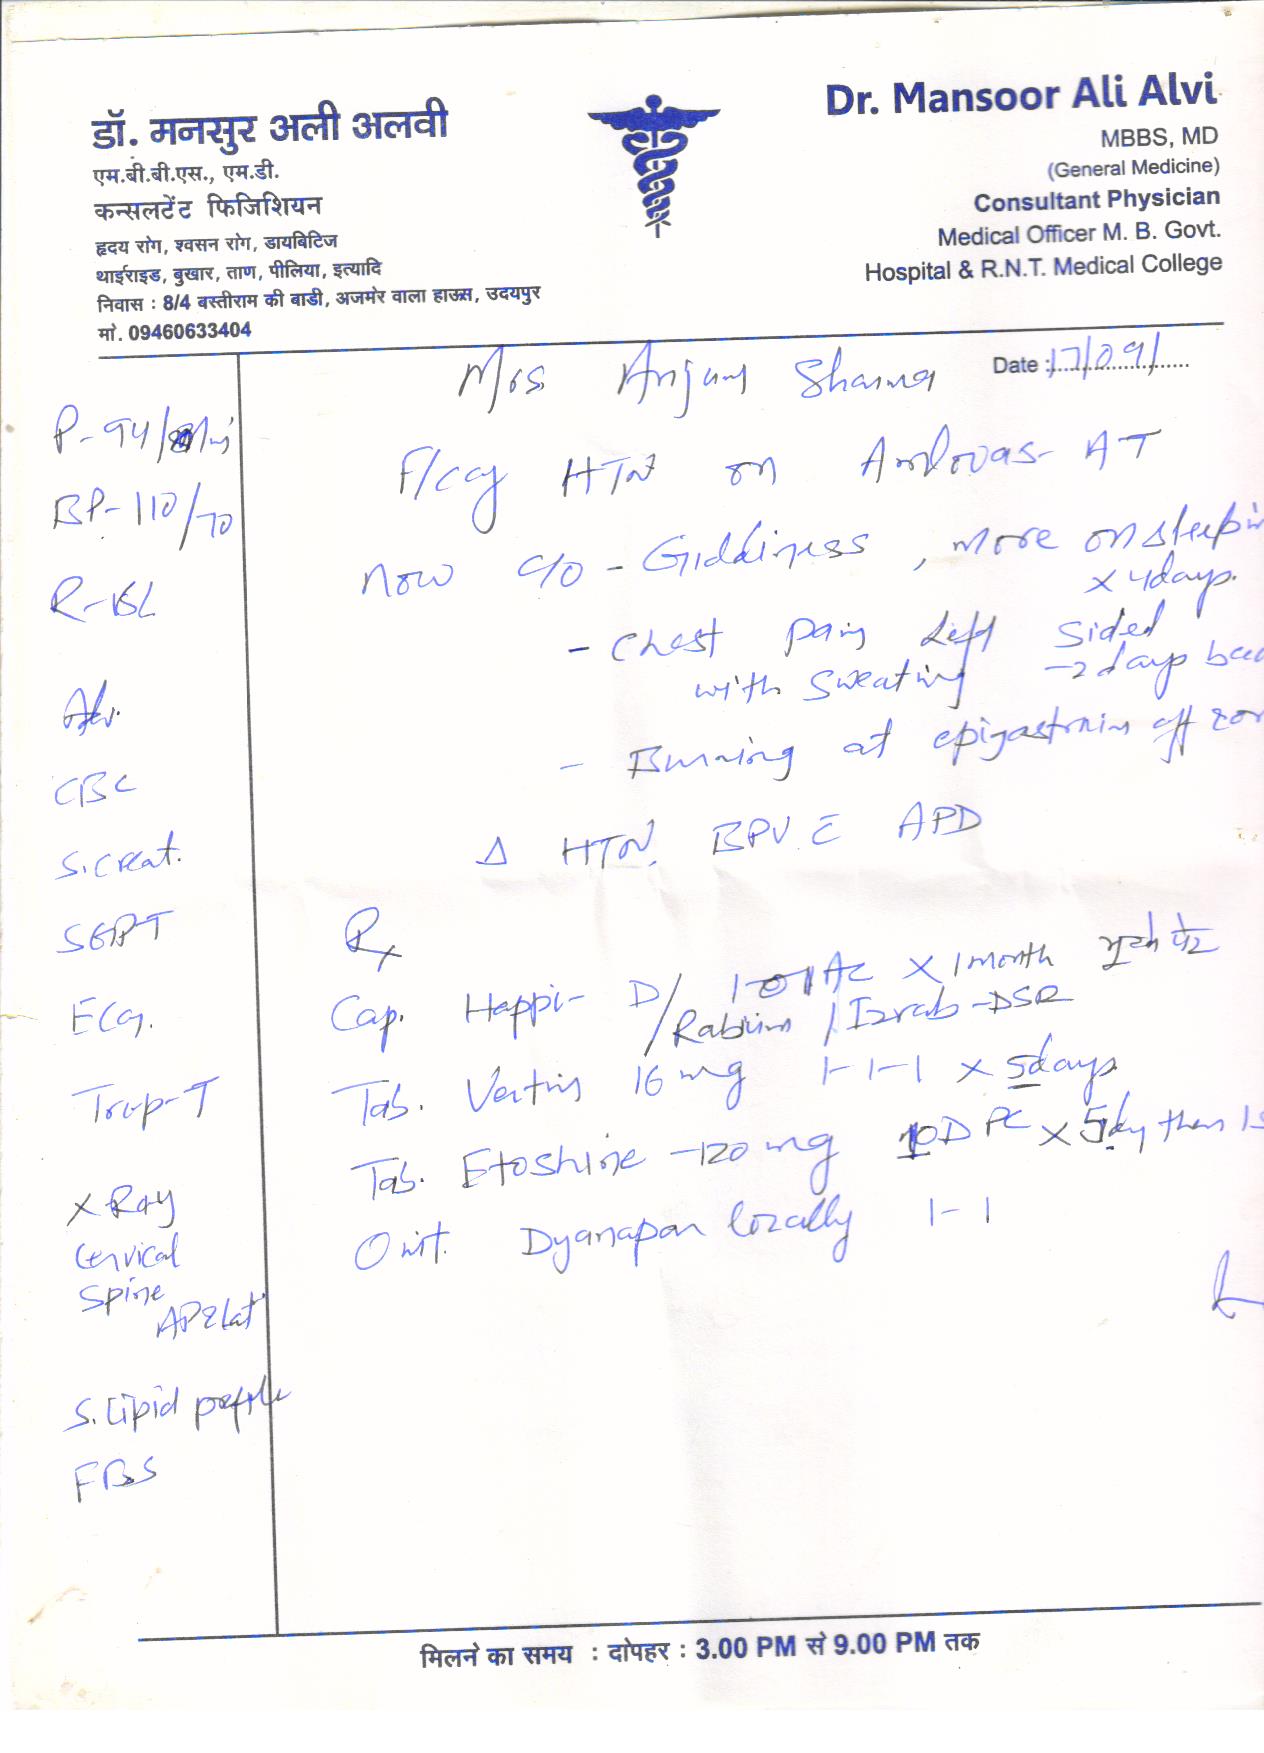 डॉ. मनसुर अली अलवी
एम.बी.बी.एस., एम.डी.
कन्सलटेंट फिजिशियन
हृदय रोग, श्वसन रोग, डायबिटिज
थाईराइड, बुखार, ताण, पीलिया, इत्यादि
निवास : 8/4 बस्तीराम की बाडी, अजमेर वाला हाऊस, उदयपुर
मो. 09460633404
Dr. Mansoor Ali Alvi
MBBS, MD
(General Medicine)
Consultant Physician
Medical Officer M. B. Govt.
Hospital & R.N.T. Medical College
Date : 17/09/
Mrs. Anjum Sharma
P-94/
BP-110/70
R-BL
Adv.
CBC
S. Creat.
SGPT
ECG.
Trop-T
X Ray
Cervical
Spine
AP & Lat
S. Lipid profile
FBS
HTN on Amlovas-AT
Now C/O - Giddiness, more on
x 4days.
- Chest pain Left Sided
with sweating - 2 days
- Burning at epigastrium
Δ HTN. BPV APD
Rx
Cap. Happi-D / 1-0-1 AC x 1 month भूखे पेट
/ Rabium / Izrab-DSR
Tab. Vertin 16 mg 1-1-1 x 5days
Tab. Etoshine -120 mg 1OD PC x 5day then
Oint. Dyanapar locally 1-1
मिलने का समय : दोपहर : 3.00 PM से 9.00 PM तक